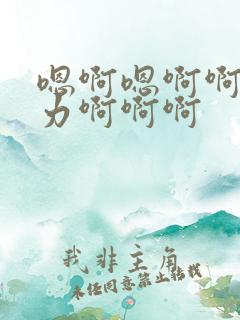 嗯啊嗯啊啊
力啊啊啊
我非主角
未经同意禁止转载